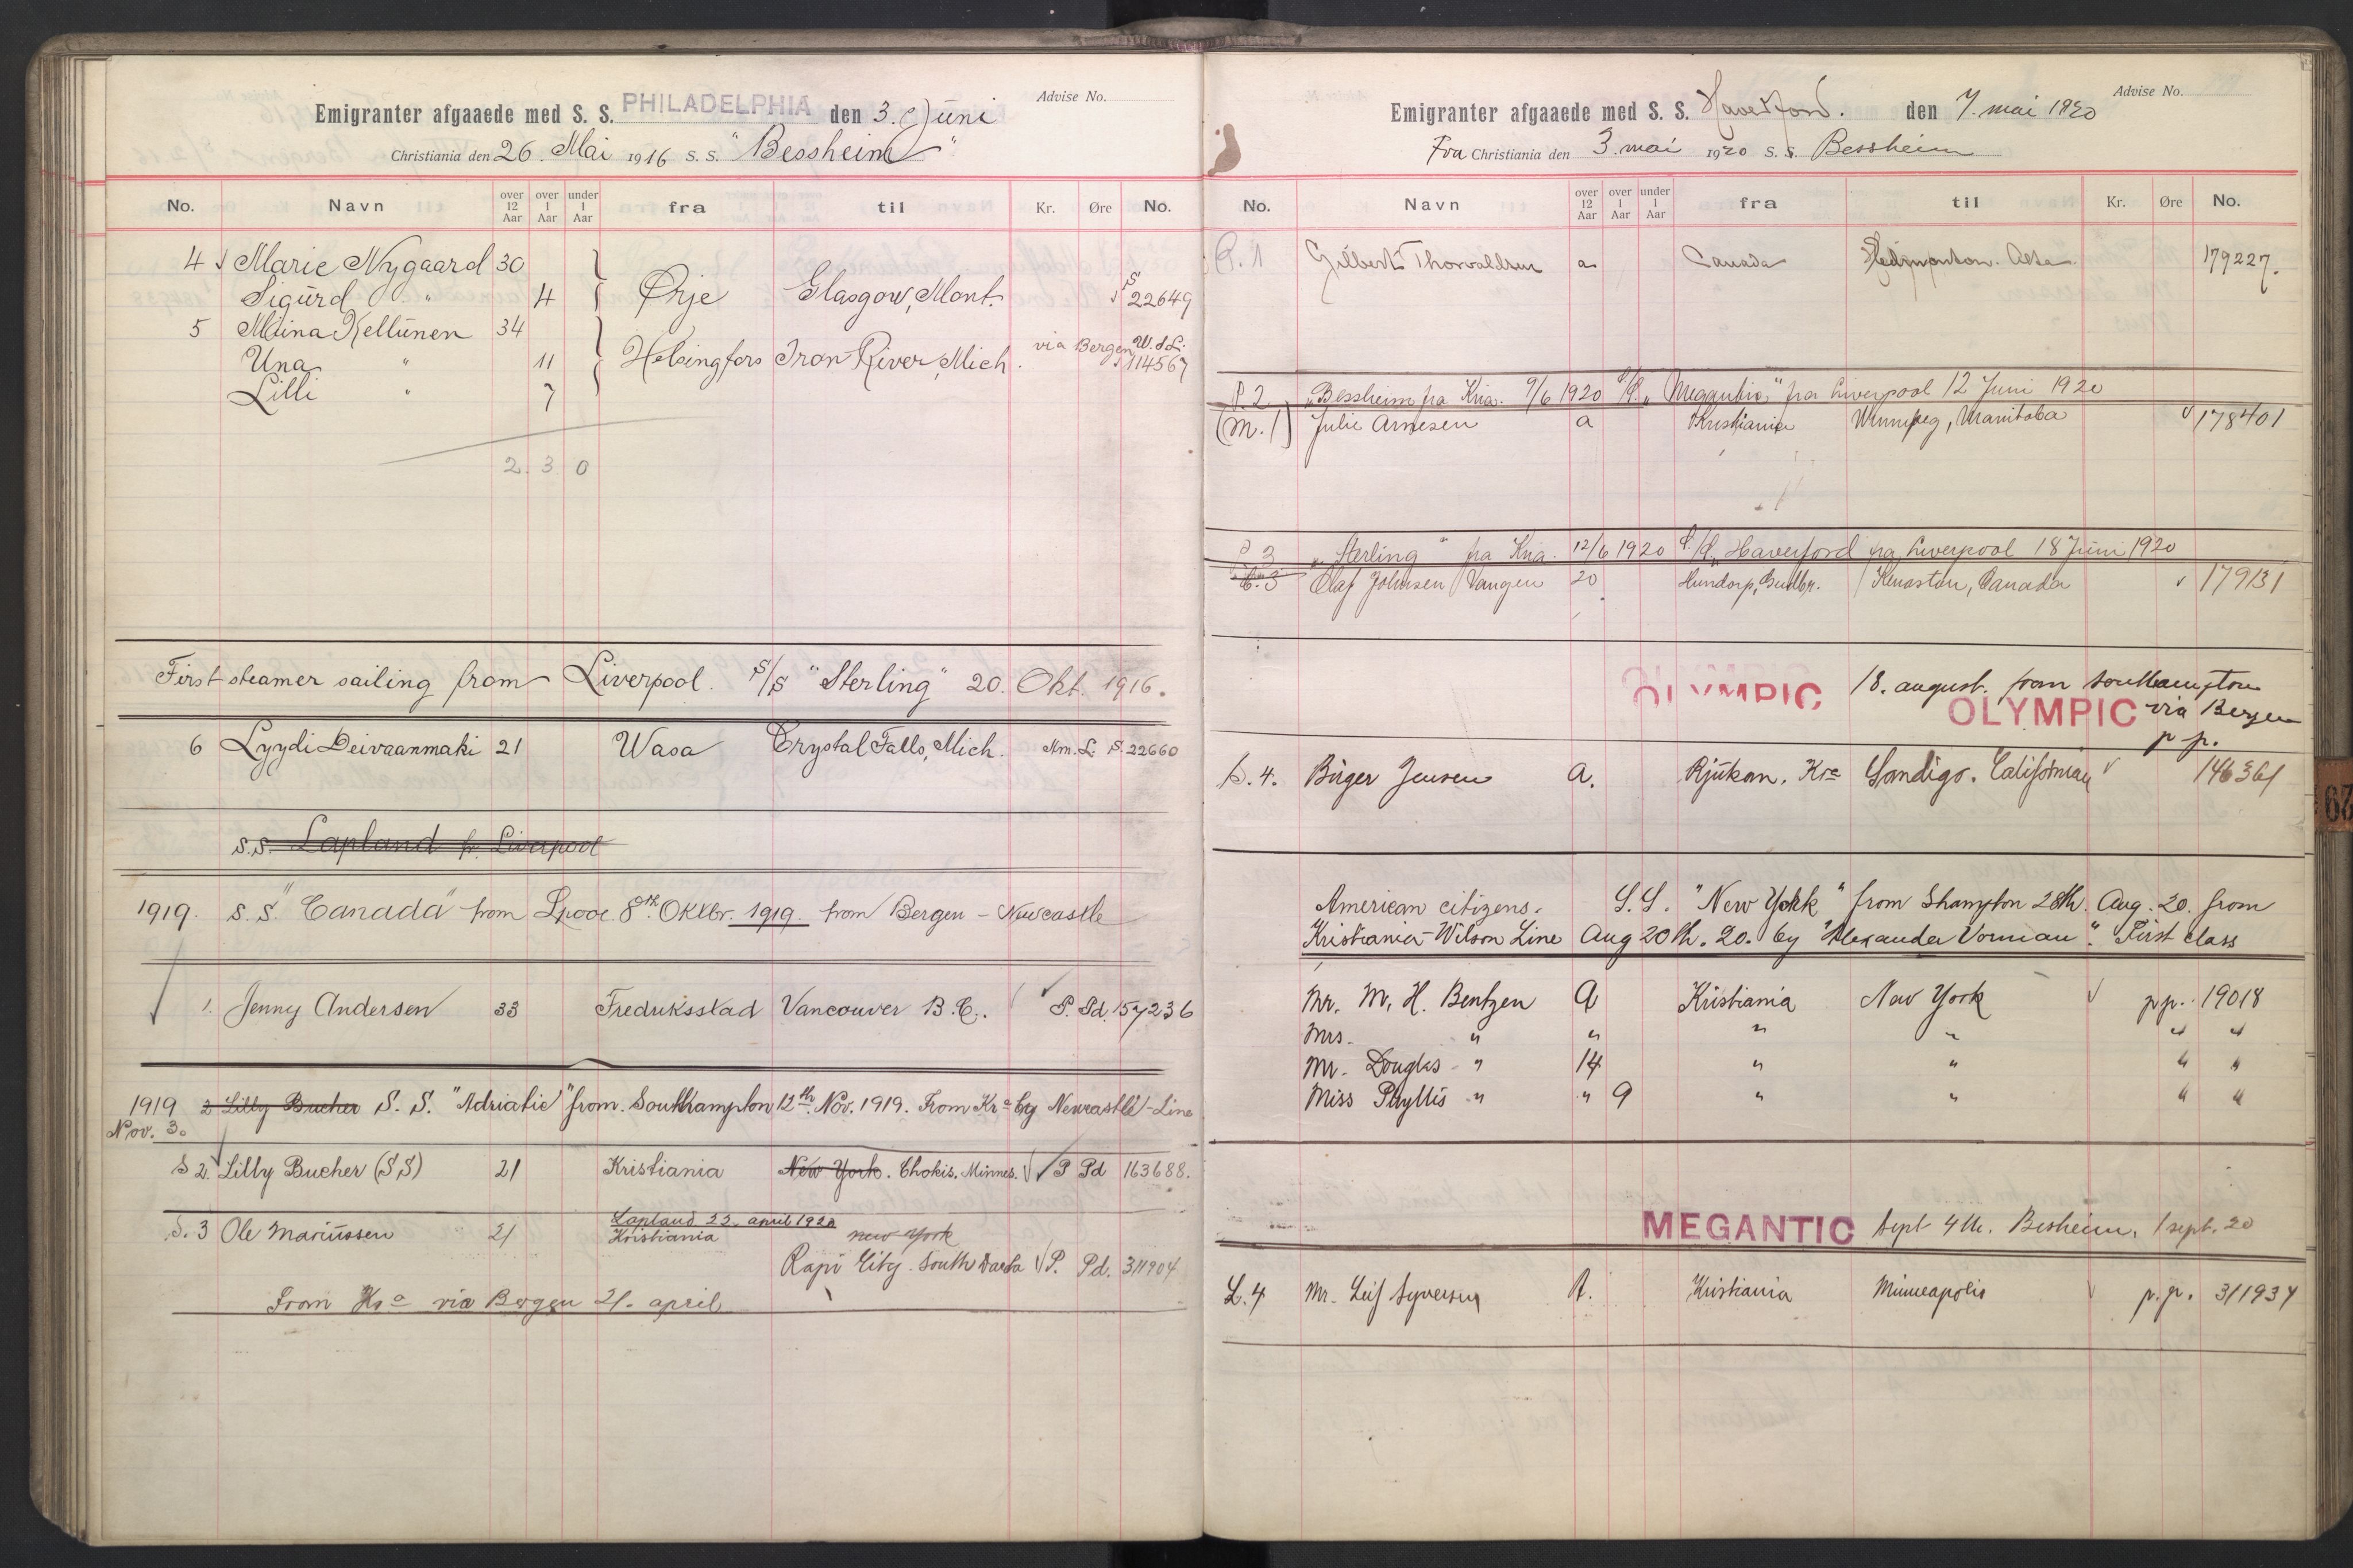 Advise No.
Emigranter afgaaede med S. S. PHILADELPHIA den 3. Juni
Christiania den 26. Mai 1916 S. S. "Bessheim"
No. Navn over 12 Aar over 1 Aar under 1 Aar fra til Kr. Øre No.
4 Marie Nygaard 30
Sigurd " 4 Ørje Glasgow, Mont. S 22649
5 Miina Kellunen 34
Una " 11 Helsingfors Iron River, Mich. via Bergen W.S.L. 114567
Lilli " 7
2. 3 0
First steamer sailing from Liverpool. S/S "Sterling" 20. Okt. 1916.
6 Lyydi Deivaanmaki 21 Wasa Crystal Falls, Mich. Am. L. S. 22660
S.S. Lapland fr. Liverpool
1919. S. S. "Canada" from Lpool 8th Oktbr. 1919. from Bergen - Newcastle
1. Jenny Andersen 33 Fredriksstad Vancouver B.C. P. Pd. 157236
1919 2 Lilly Bucher S. S. "Adriatic" from Southampton 12th Nov. 1919. From Kra by Newcastle-Line
Nov. 3.
S 2. Lilly Bucher (SS) 21 Kristiania New York. Chokis, Minnes. P Pd 163688.
Lapland 22. april 1920
S. 3 Ole Mariussen 21 Kristiania New York
Rapi City. South Dacota P. Pd. 311904
From Kra via Bergen 21. april
Advise No.
Emigranter afgaaede med S. S. Haverford. den 7. mai 1920
Fra Christiania den 3. mai 1920 S. S. Bessheim
No. Navn over 12 Aar over 1 Aar under 1 Aar fra til Kr. Øre No.
P. 1 Gilbert Thorvaldsen a Canada Edmonton. Alta 179227.
P. 2 "Bessheim fra Kria. 9/6 1920 S/S. "Megantic" fra Liverpool 12 Juni 1920
(M. 1) Julie Arnesen a Kristiania Winnipeg, Manitoba 178401
P 3 "Sterling" fra Kria. 12/6 1920 S/S. "Haverford fra Liverpool 18 Juni 1920
C. 3 Olaf Johnsen Vangen 20 Hundorp, Gudbr. Kenaston, Canada 179131
OLYMPIC 18. august. from Southampton
OLYMPIC via Bergen
p p.
S. 4. Birger Jensen A. Rjukan. Kra Sandigo. California 146361
American citizens. S.S. "New York" from Shampton 28th. Aug. 20. from
Kristiania - Wilson Line Aug 20th. 20. by "Alexander Vorman". First class
Mr. M. H. Bentzen A Kristiania New York pp. 19018
Mrs. " " " " " "
Mr. Douglas " 14 " " " "
Miss Phyllis " " 9 " " " "
MEGANTIC Sept 4th. Besheim, 1 sept. 20
L. 4 Mr. Leif Syversen A. Kristiania Minneapolis p.p. 311934